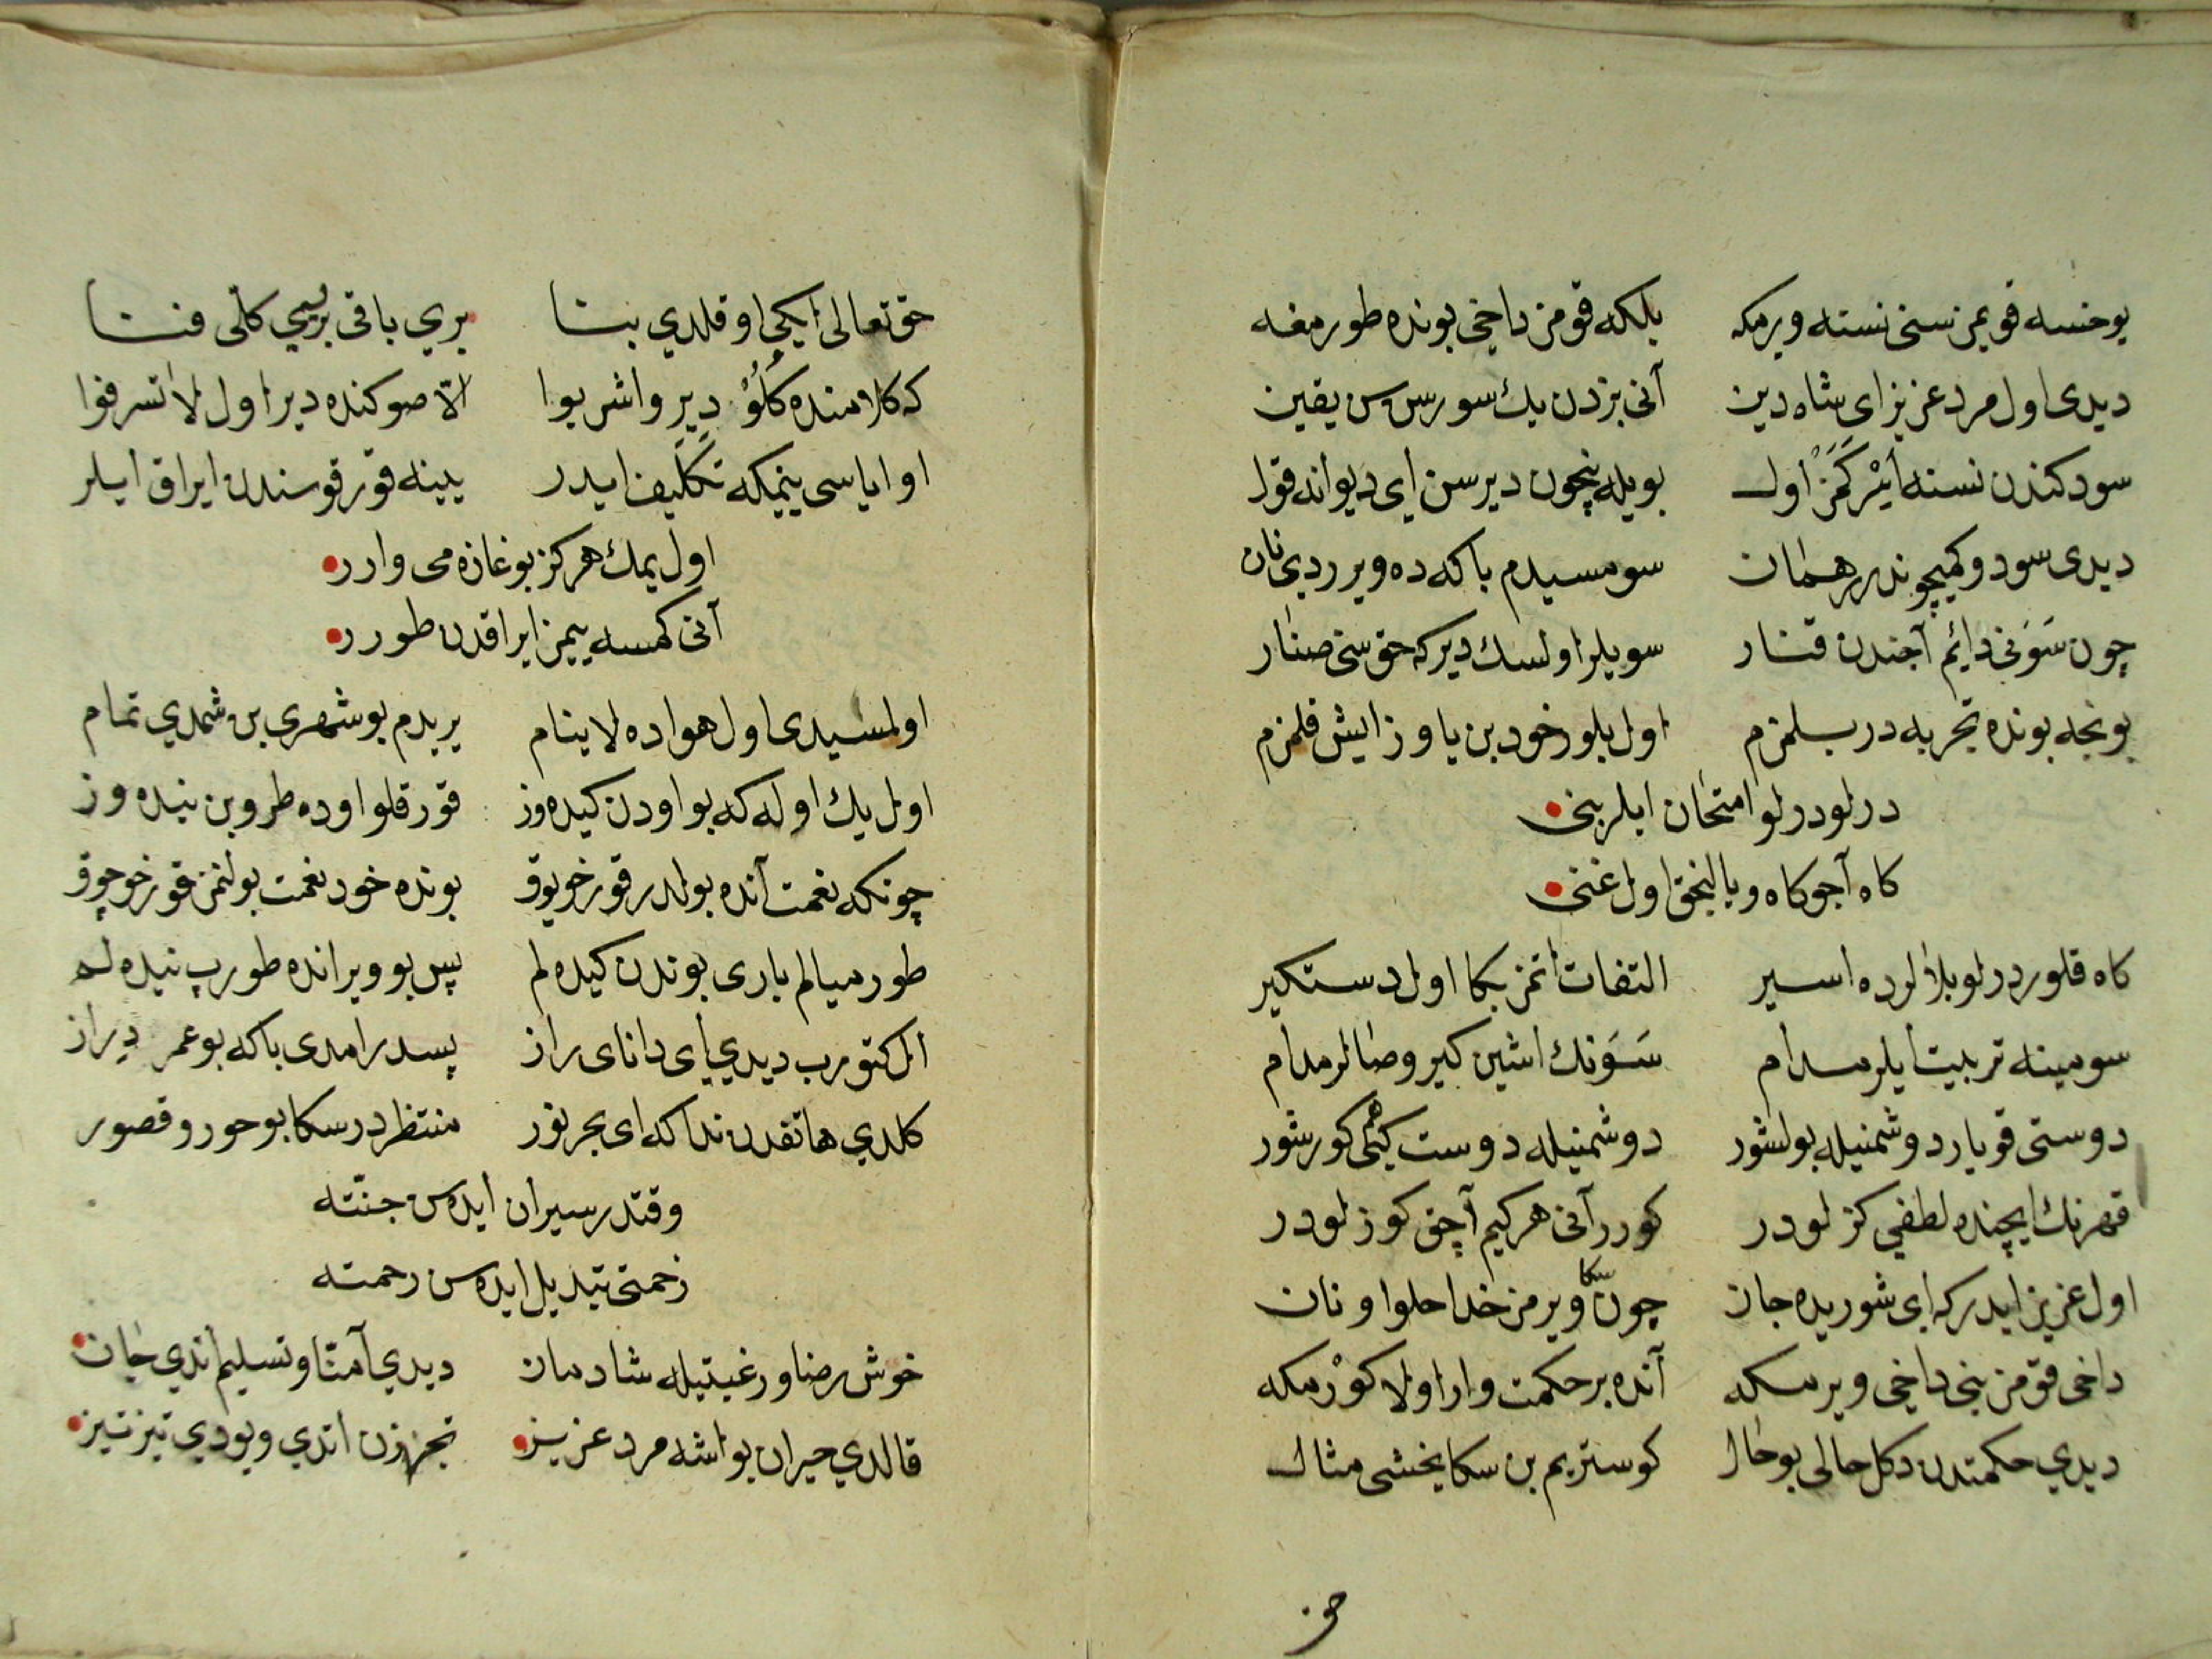 یوخسه قویمز سنی نسنه ویرمکه بلکه قومز داخی بونده طورمغه
دیدی اول مرد عزیز ای شاه دین آنی بزدن یك سورسن یقین
سود کندن نسنه ایرکمز اول بویله نیچون دیرسن ای دیوانه قول
دیدی سودوکیچوندر هر همان سومسیدم باکه ده ویرردی نان
چون سونی دائم آجندن قنار سویلر اولسك دیرکه حق سنی صنار
بونجه بونده تجربه در بیلمزم اول بلور خود بن یاوز ایش قلمزم
درلو درلو امتحان ایلر بنی
کاه آجو کاه و یالنجق اول غنی
کاه قلور درلو بلالرده اسیر التفات اتمز بکا اول دستکیر
سومینه تربیت ایلر مدام سونك اشین کیرو صالر مدام
دوستی قویار دوشمنیله بولشور دوشمنیله دوست کبی کورشور
قهرنك ایچنده لطفی کزلودر کورر آنی هرکیم آچق کوزلودر
اول عزیز ایدرکه ای شوریده جان چون سکا ویرمز خدا حلوا و نان
داخی قومز بنی داخی ویرمکه آنده بر حکمت وار اولا کورمکه
دیدی حکمتدن دکل حالی بو حال کوستریم بن سکا یخشی مثال
حق
حق تعالی ایکی او قلدی بنا بری باقی بریسی کلی فنا
که کلامنده کلو دیر واشربوا الا صوکنده دیر اول لا تسرفوا
او ایاسی ییمکه تکلیف ایدر یینه قورقوسندن ایراق ایلر
اول یمك هرکز بوغازه می وارر
آنی کمسه ییمز ایراقدن طورر
اولمسیدی اول هواده لاینام یریدم بو شهری بن شمدی تمام
اول یك اوله که بو اودن کیده وز قورقلو اوده طروبن نیده وز
چونکه نعمت آنده بولدر قورخو یوق بونده خود نعمت بولنمز قورخو چوق
طورمیالم باری بوندن کیده لم پس بو ویرانده طورب نیده لم
ال کتورب دیدی ای دانای راز پسدرامدی باکه بو عمر دیراز
کلدی هاتفدن ندا که ای بحر نور منتظردر سکا بو حور و قصور
وقتدر سیران ایده سن جنته
زحمتی تبدیل ایده سن رحمته
خوش رضا و رغبتیله شادمان دیدی آمنا و تسلیم اتدی جان
قالدی حیران بو اشه مرد عزیز تجهیزن اتدی و یودی تیز تیز